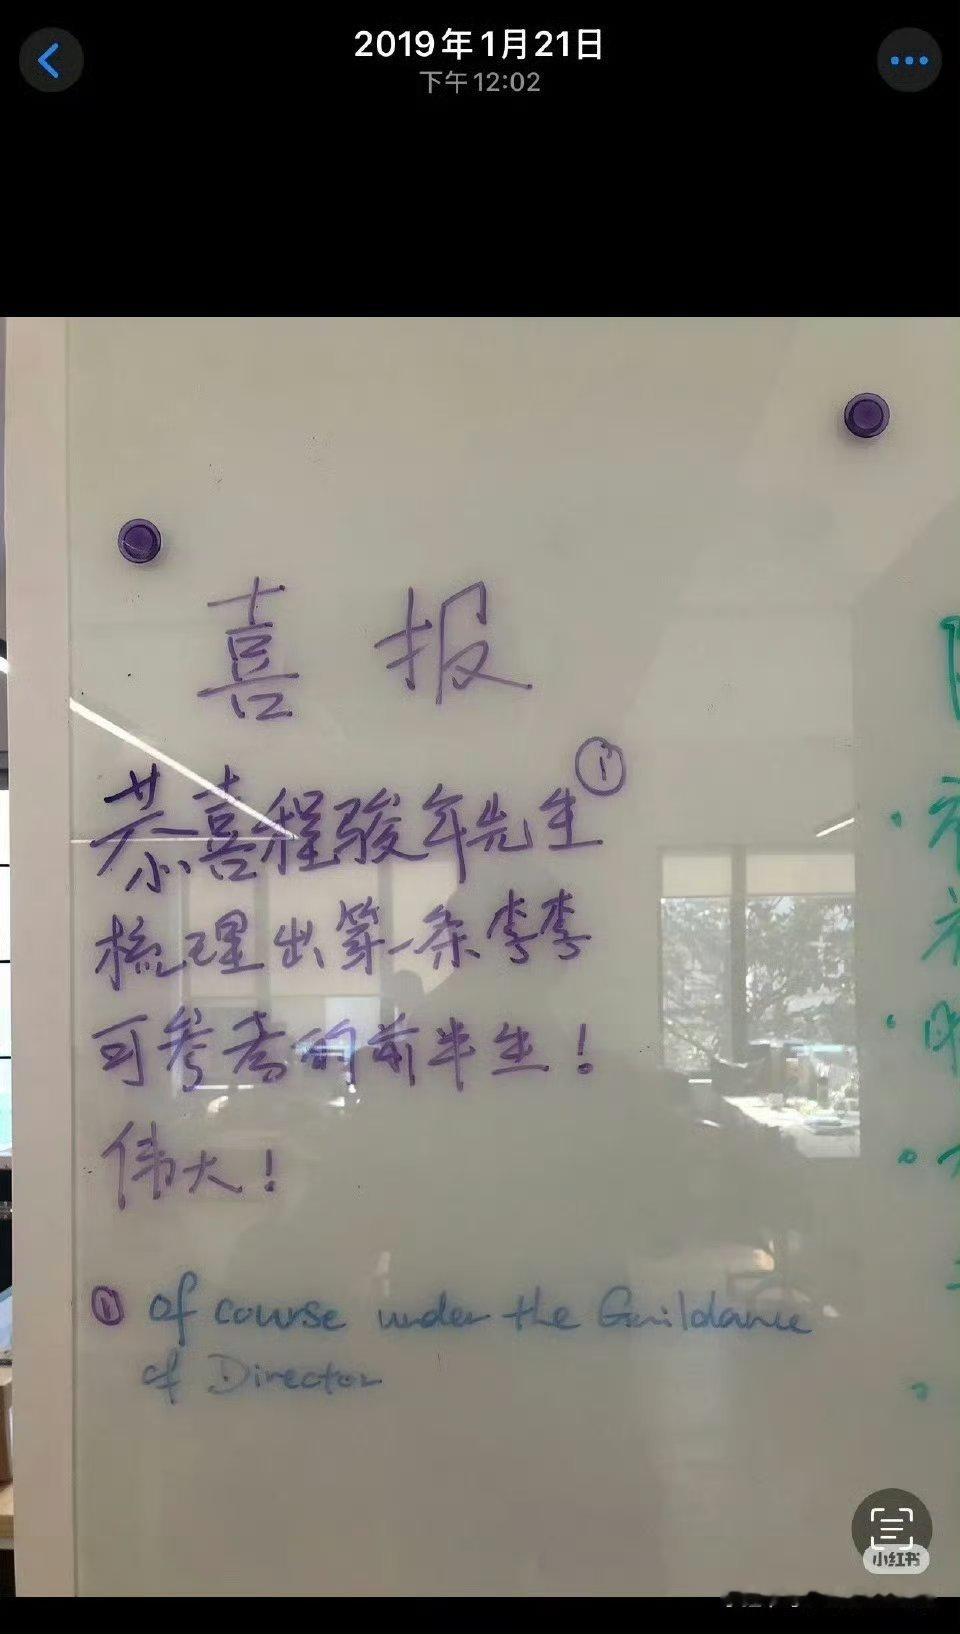 2019年1月21日
下午12:02
喜报
恭喜程骏年先生①
梳理出第一条李李
可参考的前半生！
伟大！
① of course under the Guildance
of Director
小红书